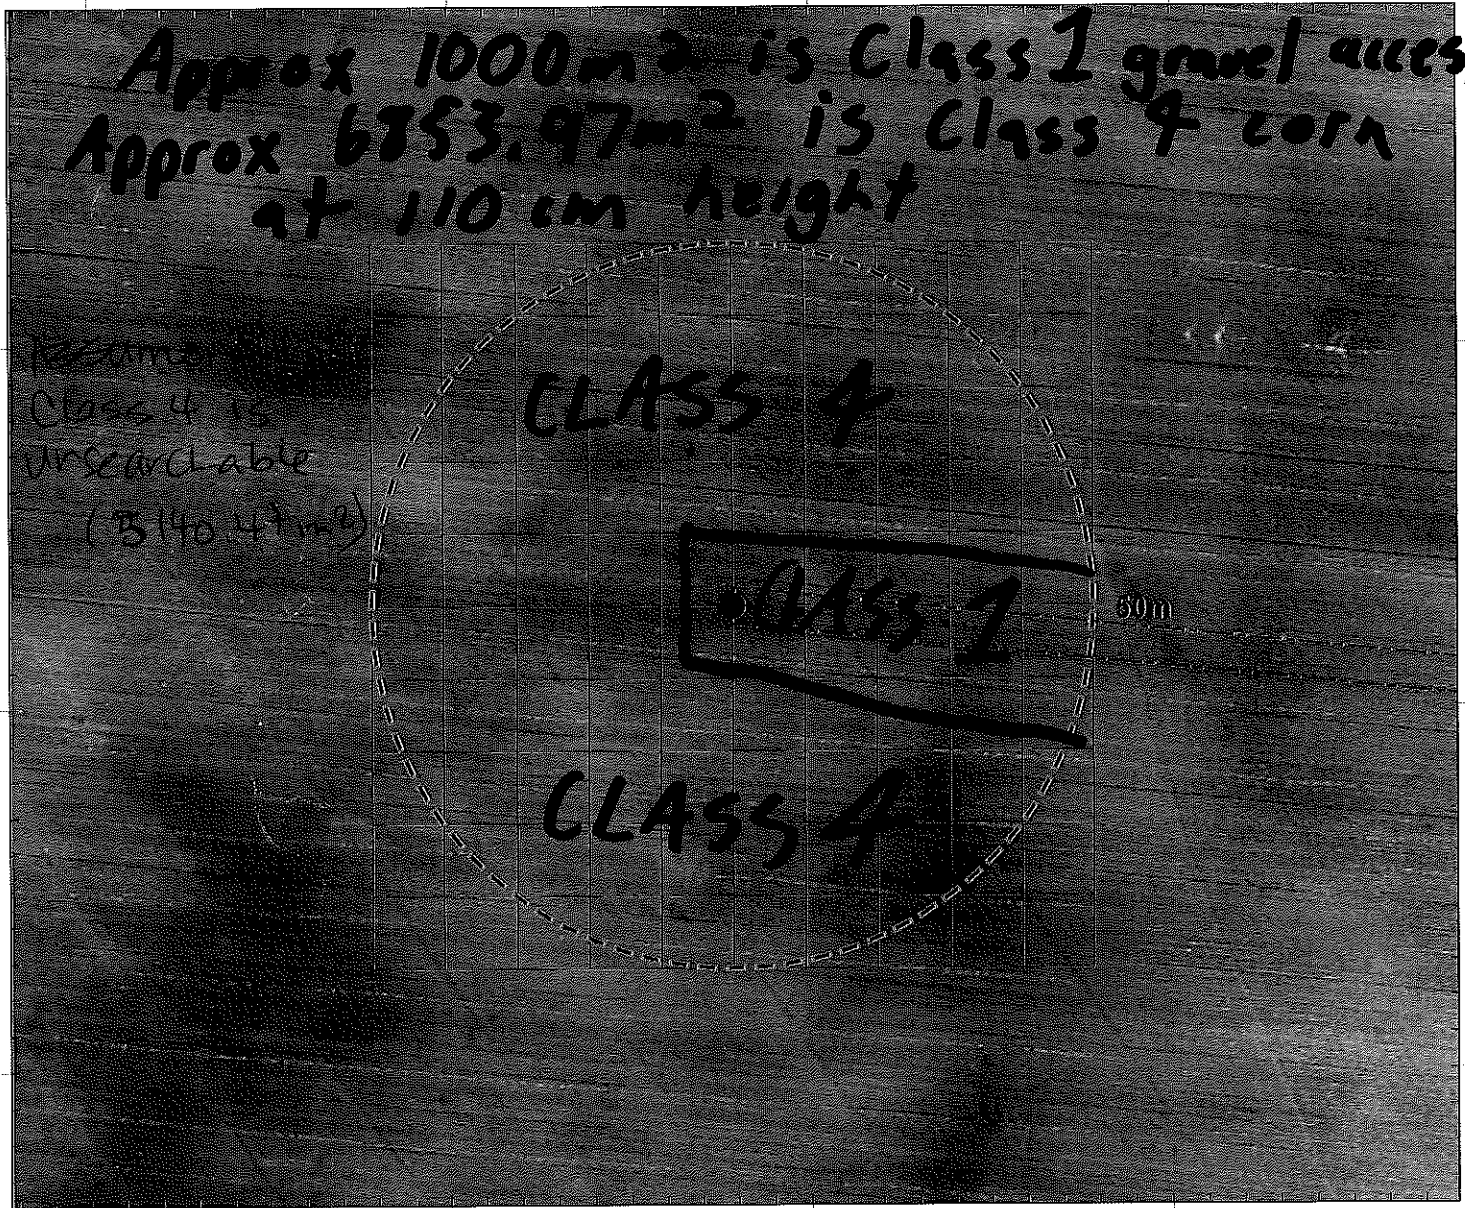 Approx 1000m2 is Class 1 gravel acces
Approx 6853.97m2 is Class 4 corn
at 110 cm height
Class 4 is
unsearchable
CLASS 4
CLASS 1
50m
CLASS 4